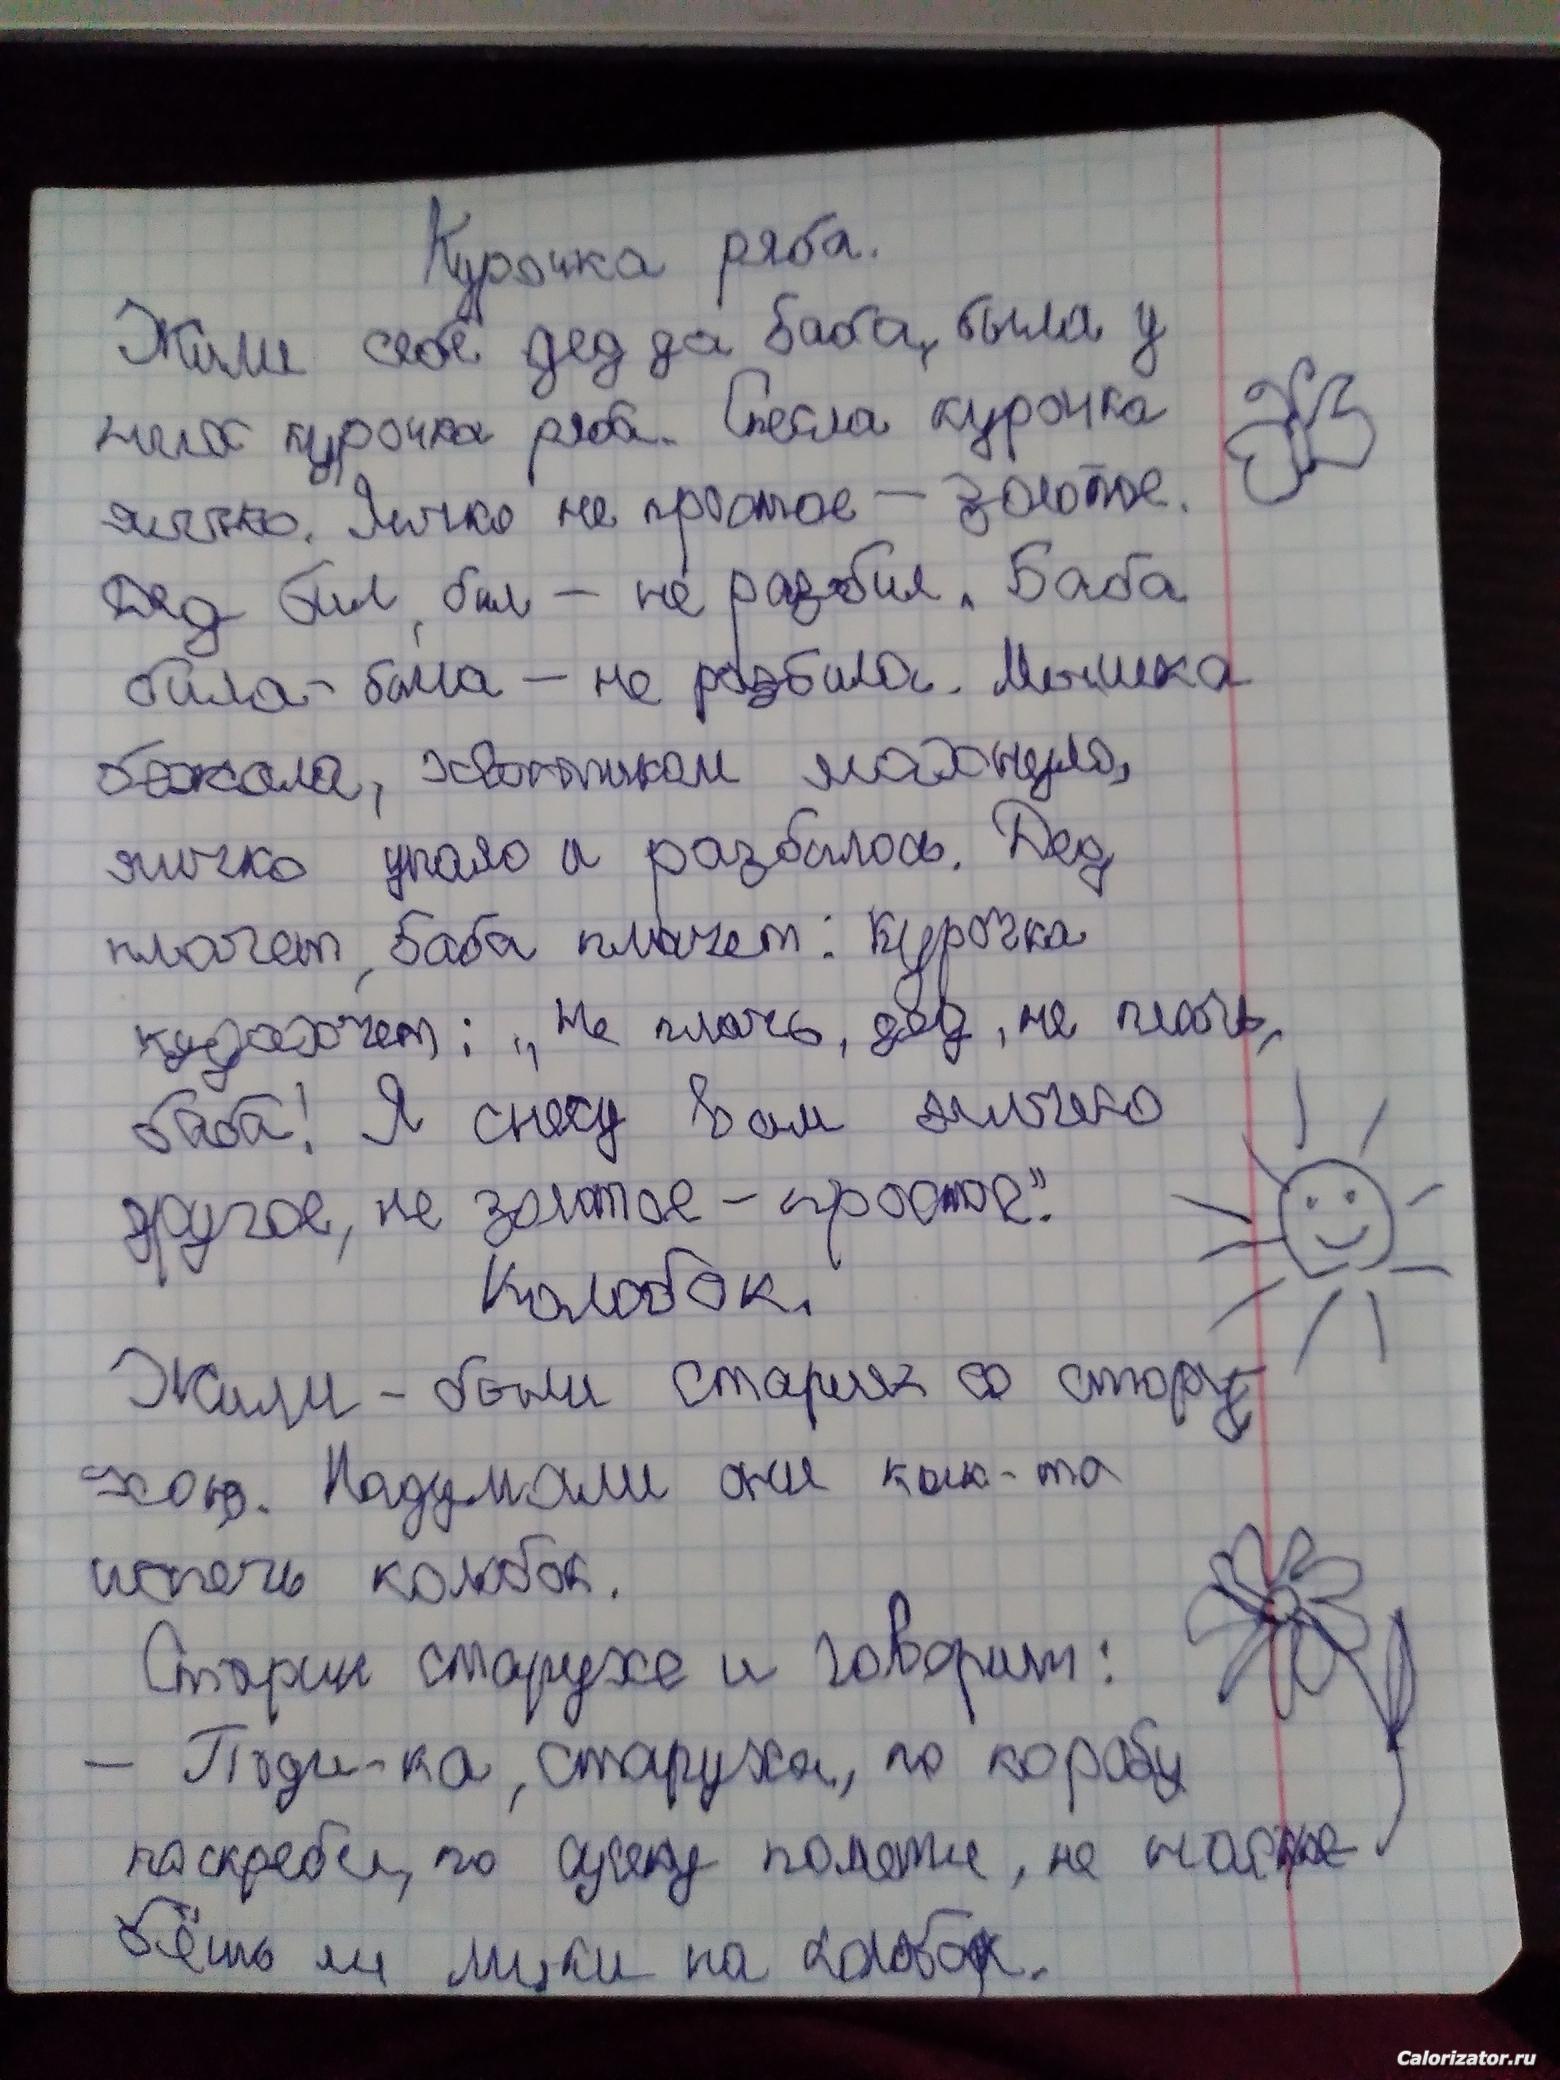 Курочка ряба.
Жили себе дед да баба, была у
них курочка ряба. Снесла курочка
яичко. Яичко не простое — золотое.
Дед бил, бил — не разбил. Баба
била - била — не разбила. Мышка
бежала, хвостиком махнула,
яичко упало и разбилось. Дед
плачет, баба плачет: курочка
кудахчет: „Не плачь, дед, не плачь,
баба! Я снесу вам яичко
другое, не золотое — простое".
Колобок.
Жили - были старик со стару
хою. Надумали они как-то
испечь колобок.
Старик старухе и говорит:
— Поди-ка, старуха, по коробу
поскреби, по сусеку помети, не наскре
бёшь ли муки на колобок.
Calorizator.ru